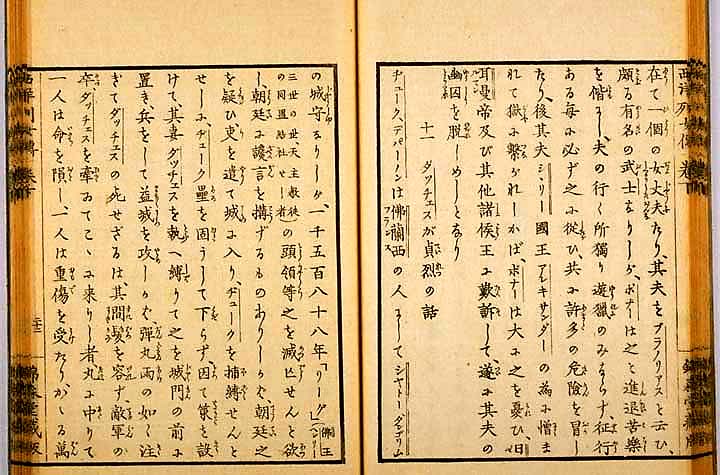 西洋列女傳 卷一
在て一個の女丈夫たり其夫をブラノリアスと云ひ
頗る有名の武士なりしがボナーは之と進退苦樂
を偕にし夫の行く所獨り遊獵のみならず征行
ある毎に必ず之に從ひ共に許多の危險を冒し
たり、後其夫 國王アルキサンダーの為に憎ま
れて獄に繋がれしかばボナーは大に之を憂ひ、日
耳曼帝及び其他諸侯王に歎訴して、遂に其夫の
幽囚を脱しめしとなり
十一 ダッチェスが貞烈の話
ヂューク、デパーノンは佛蘭西の人にしてシャトー、ダンゴーム
の城守なりしが、一千五百八十八年「リーグ」(佛王ヘンリー
三世の世、天主教徒の同盟結社せし者)の頭領等之を滅せんと欲
し、朝廷に讒言を搆げるものありしかば、朝廷之
を疑ひ吏を遣て城に入り、ヂュークを捕縛せんと
せしに、ヂューク壘を固うして下らず、因て策を設
けて、其妻ダッチェスを執へ縛りて之を城門の前に
置き、兵をして益城を攻しむ、彈丸雨の如く注
ぎてダッチェスの死せざるは、其間髪を容ず、敵軍の
卒、ダッチェスを牽ゐてここに来りし者丸に中りて
一人は命を隕し、一人は重傷を受たりかかる萬
錦森堂藏版